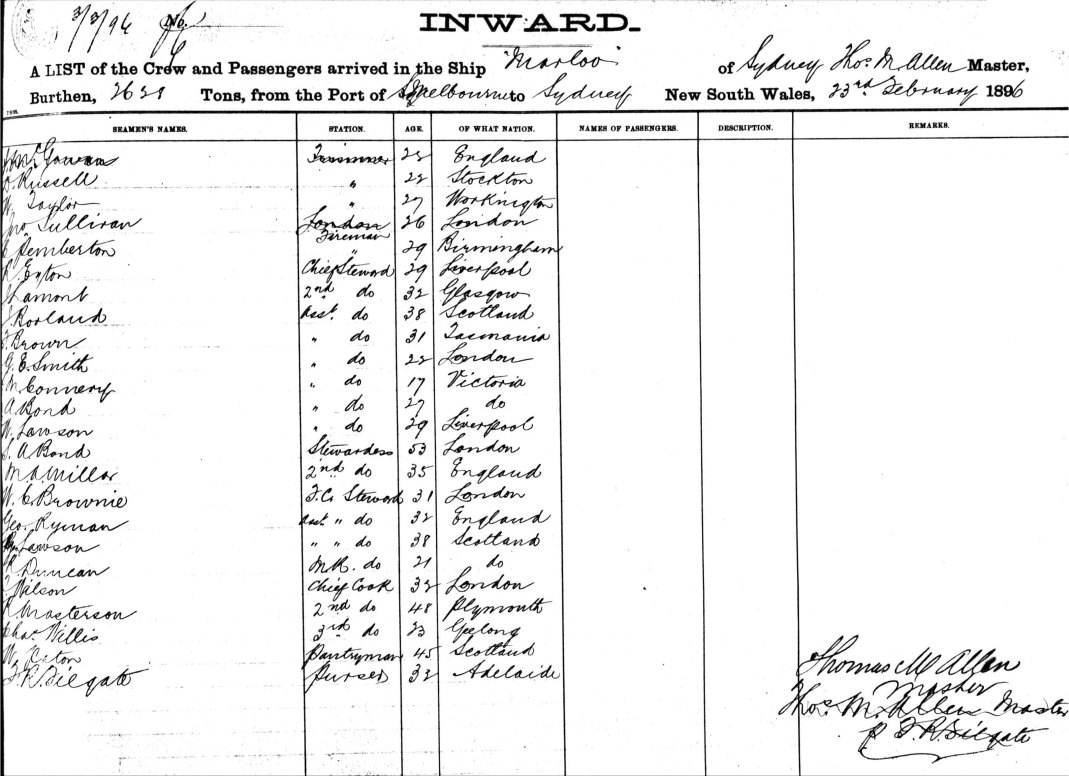 3/3/96 No. 6
INWARD.
A LIST of the Crew and Passengers arrived in the Ship "Marloo" of Sydney Thos M Allen Master,
Burthen, 2628 Tons, from the Port of Melbourne to Sydney New South Wales, 23rd February 1896
SEAMEN'S NAMES. STATION. AGE. OF WHAT NATION. NAMES OF PASSENGERS. DESCRIPTION. REMARKS.
McGowan Trimmer England
Russell " 22 Stockton
W. Taylor " 27 Workington
Jno Sullivan London Fireman 26 London
Pemberton " 29 Birmingham
Eyton Chief Steward 29 Liverpool
Lamont 2nd do 32 Glasgow
Rorland Asst. do 38 Scotland
Brown " do 31 Tasmania
G. E. Smith " do 22 London
M. Connery " do 17 Victoria
A Bond " do 27 do
W. Lawson " do 29 Liverpool
S. A Bond Stewardess 53 London
M A Millar 2nd do 35 England
W. C. Brownie F.C. Steward 31 London
Geo. Ryman Asst " do 32 England
Lawson " " do 38 Scotland
Duncan M.R. do 21 do
Wilson Chief Cook 32 London
R Masterson 2nd do 48 Plymouth
Chas. Willis 3rd do 23 Geelong
W. Paton Pantryman 45 Scotland
F. R. Tilgate Purser 32 Adelaide
Thomas M Allen
Master
Thos. M. Allen Master
p F. R. Tilgate